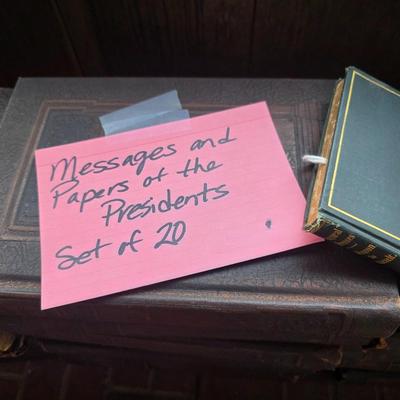 Messages and
Papers of the
Presidents
Set of 20